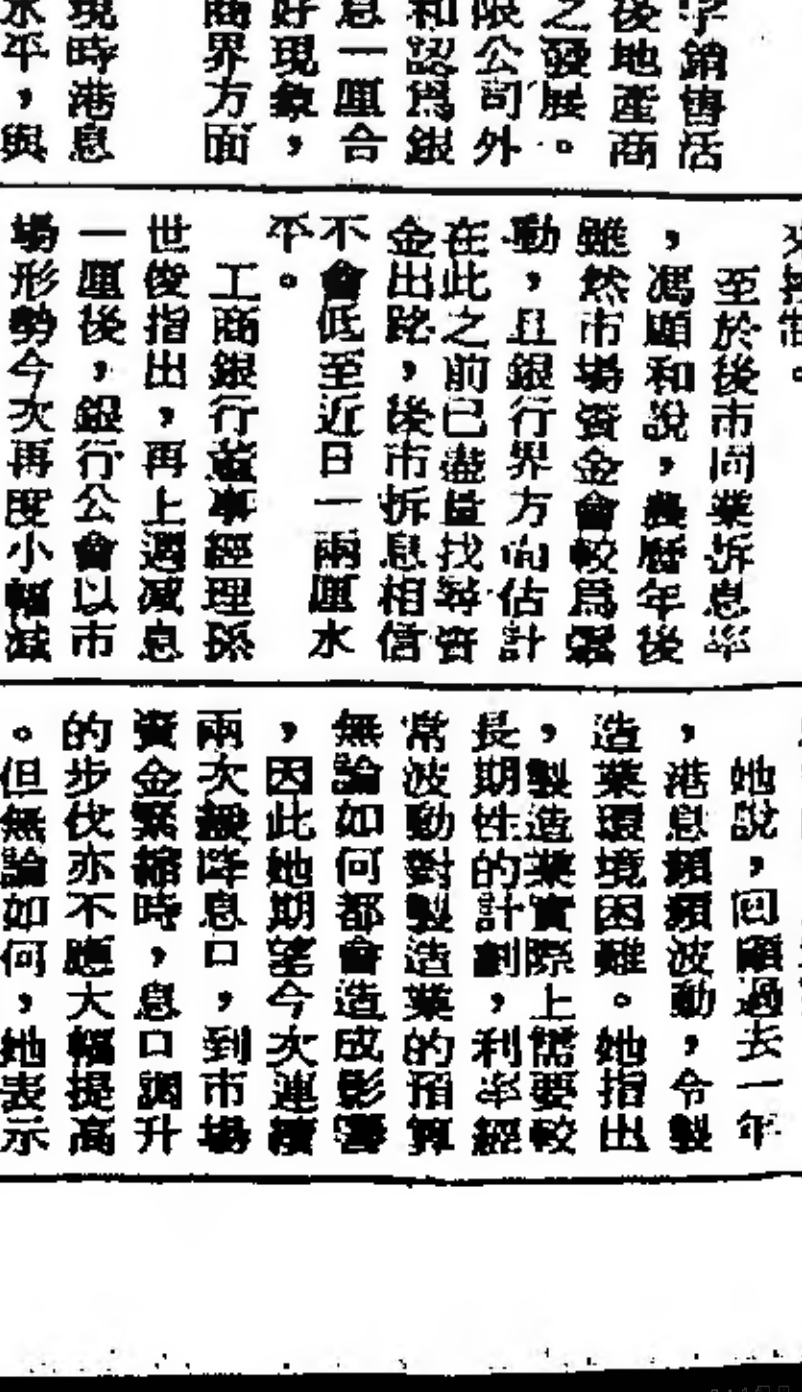 字銷售活
後地產商
之發展。
限公司外
和認爲銀
息一厘合
好現象,
商界方面
現時港息
水平,與
來控制。
至於後市同業拆息率
,馮願和說,農曆年後
雖然市場資金會較爲鬆
動,且銀行界方向估計
在此之前已盡量找尋資
金出路,後市拆息相信
不會低至近日一兩厘水
平。
工商銀行董事經理孫
世俊指出,再上週减息
一厘後,銀行公會以市
場形勢今次再度小幅减
她說,回顧過去一年
,港息頻頻波動,令製
造業環境困難。她指出
,製造業實際上需要較
長期性的計劃,利率經
常波動對製造業的預算
無論如何都會造成影響
,因此她期望今次連續
兩次緩降息口,到市場
資金緊縮時,息口調升
的步伐亦不應大幅提高
。但無論如何,她表示